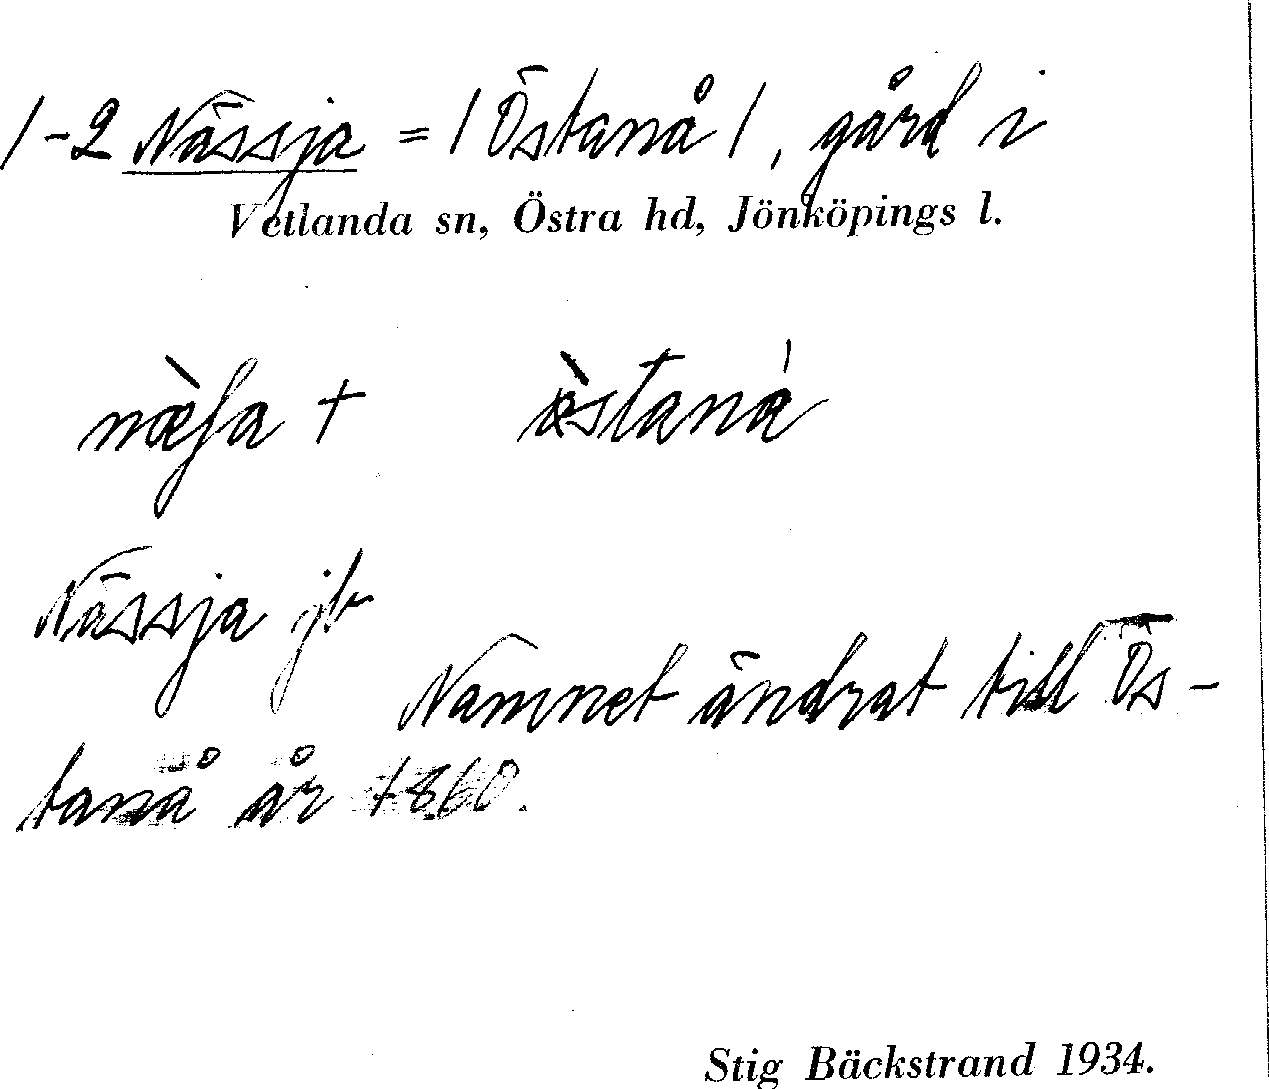 1-2 Nässja = / Östanå /, gård i
Vetlanda sn, Östra hd, Jönköpings l.
Nässja jb
Namnet ändrat till Ös-
tanå år 1860.
Stig Bäckstrand 1934.